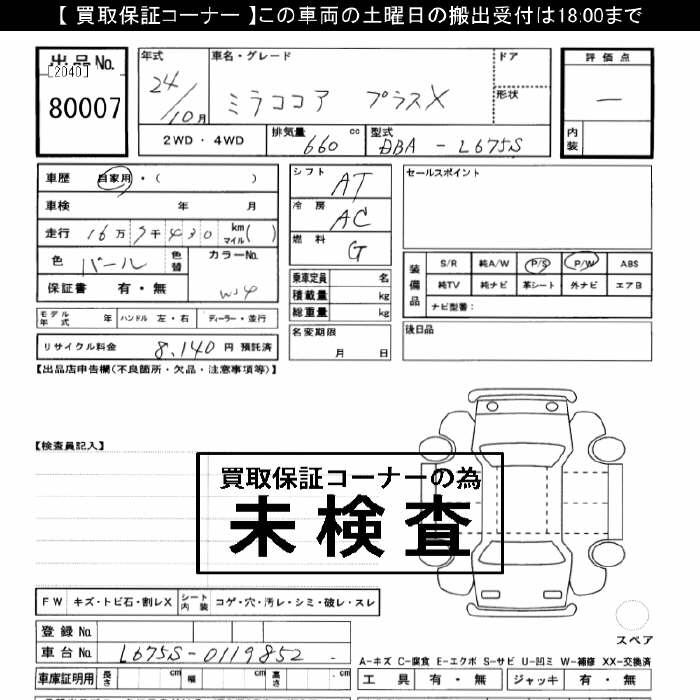 【 買取保証コーナー 】この車両の土曜日の搬出受付は18:00まで
出品No.
[2040]
80007
年式
24/10月
車名・グレード
ミラココア プラスX
ドア
形状
評価点
一
内装
2WD・4WD
排気量
660 cc
型式
DBA - L675S
車歴 自家用・( )
車検 年 月
走行 16万 7千 430 km マイル( )
色 パール 色替
カラーNo.
W24
保証書 有・無
シフト AT
冷房 AC
燃料 G
乗車定員 名
積載量 kg
総重量 kg
セールスポイント
装備品
S/R 純A/W P/S P/W ABS
純TV 純ナビ 革シート 外ナビ エアB
ナビ型番:
モデル年式 年 ハンドル 左・右 ディーラー・並行
リサイクル料金 8,140円 預託済
名変期限
月 日
後日品
【出品店申告欄(不良箇所・欠品・注意事項等)】
【検査員記入】
買取保証コーナーの為
未検査
FW キズ・トビ石・割レX シート内装 コゲ・穴・汚レ・シミ・破レ・スレ
登録No.
車台No. L675S-0119852
車庫証明用 長さ cm 幅 cm 高さ cm
スペア
A-キズ C-腐食 E-エクボ S-サビ U-凹ミ W-補修 XX-交換済
工具 有・無 ジャッキ 有・無